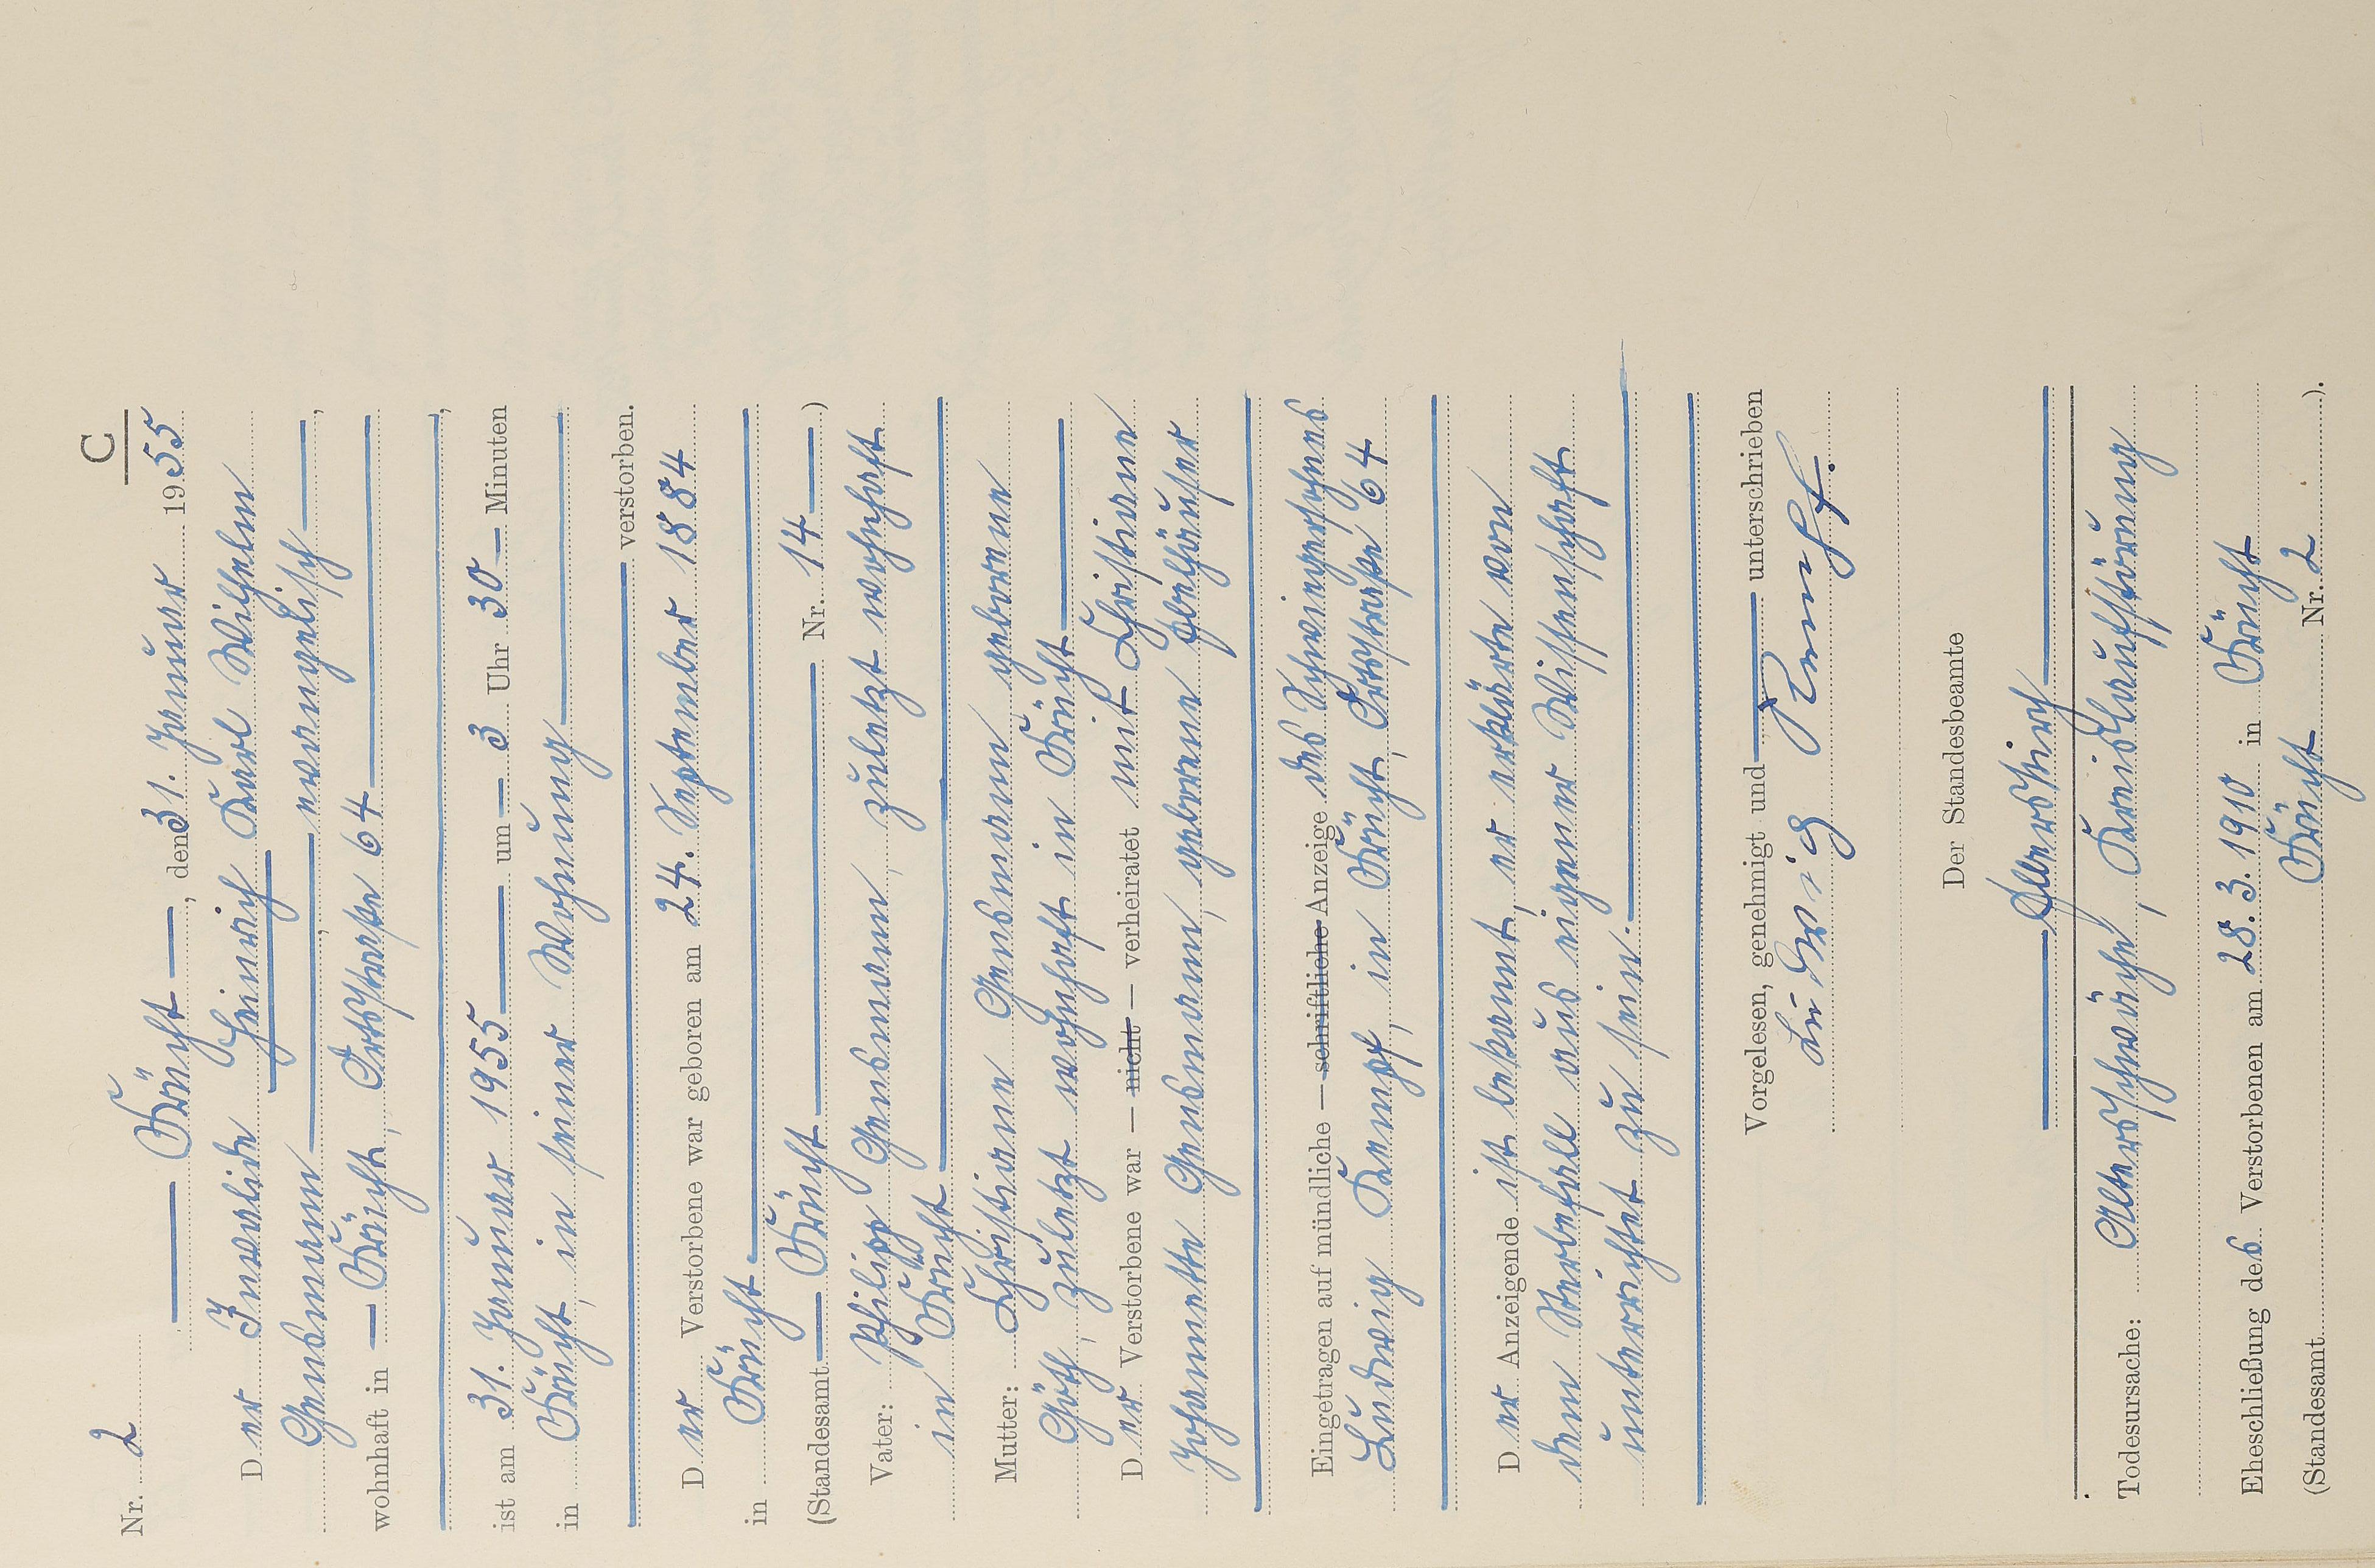 C
Nr. 2
Frücht, den 31. Januar 1955
Der Invalide Heinrich Karl Wilhelm
Gensmann evangelisch,
wohnhaft in Frücht, Ortsstraße 64,
ist am 31. Januar 1955 um 3 Uhr 30 Minuten
in Frücht, in seiner Wohnung
verstorben.
Der Verstorbene war geboren am 24. September 1884
in Frücht.
(Standesamt Frücht Nr. 14)
Vater: Philipp Gensmann, zuletzt wohnhaft
in Frücht
Mutter: Christiane Gensmann geborene
Göth, zuletzt wohnhaft in Frücht
Der Verstorbene war — nicht — verheiratet mit Christiane
Johannette Gensmann, geborene Ebelhäuser
Eingetragen auf mündliche — schriftliche Anzeige des Schwiegersohnes
Ludwig Kempf, in Frücht, Ortsstraße 64
Der Anzeigende ist bekannt, er erklärte von
dem Sterbefall aus eigener Wissenschaft
unterrichtet zu sein.
Vorgelesen, genehmigt und unterschrieben
Ludwig Kempf.
Der Standesbeamte
Todesursache: Altersschwäche, Kreislaufstörung
Eheschließung des Verstorbenen am 28.3.1910 in Frücht
(Standesamt Frücht Nr. 2).